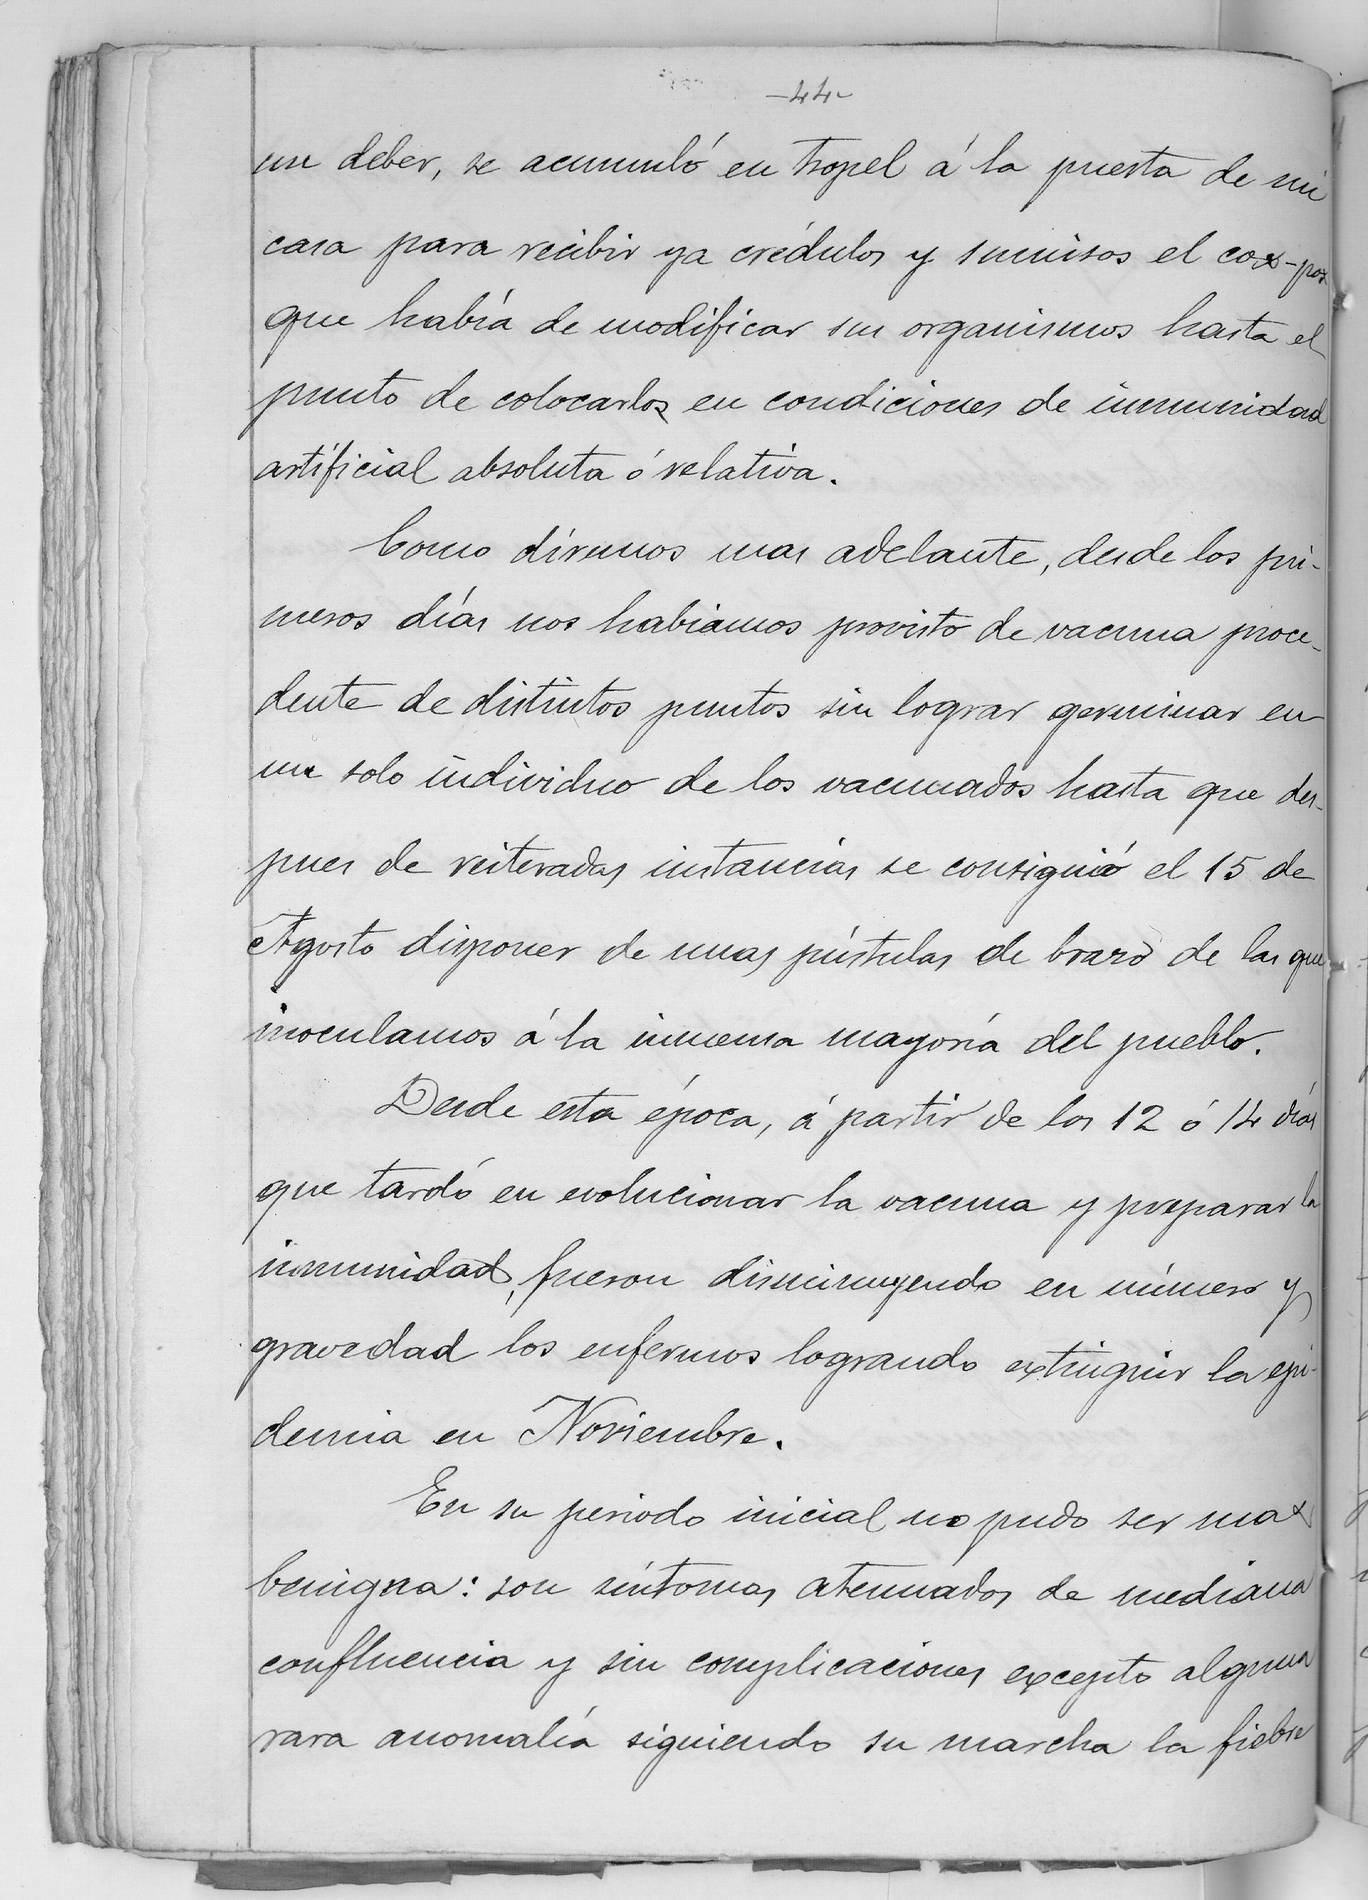 -44-
un deber, se acumuló en tropel á la puesta de mi
casa para recibir ya crédulos y sumisos el cox-pox
que había de modificar sus organismos hasta el
punto de colocarlos en condiciones de inmunidad
artificial absoluta ó relativa.
Como diremos mas adelante, desde los pri-
meros días nos habiamos provisto de vacuna proce-
dente de distintos puntos sin lograr germinar en
un solo individuo de los vacunados hasta que des-
pues de reiteradas instancias se consiguió el 15 de
Agosto disponer de unas pústulas de brazo de las que
inoculamos á la inmensa mayoría del pueblo.
Desde esta época, á partir de los 12 ó 14 días
que tardó en evolucionar la vacuna y preparar la
inmunidad, fueron disminuyendo en número y
gravedad los enfermos logrando extinguir la epi-
demia en Noviembre.
En su periodo inicial no pudo ser mas
benigna: son síntomas atenuados de mediana
confluencia y sin complicaciones excepto alguna
rara anomalía siguiendo su marcha la fiebre